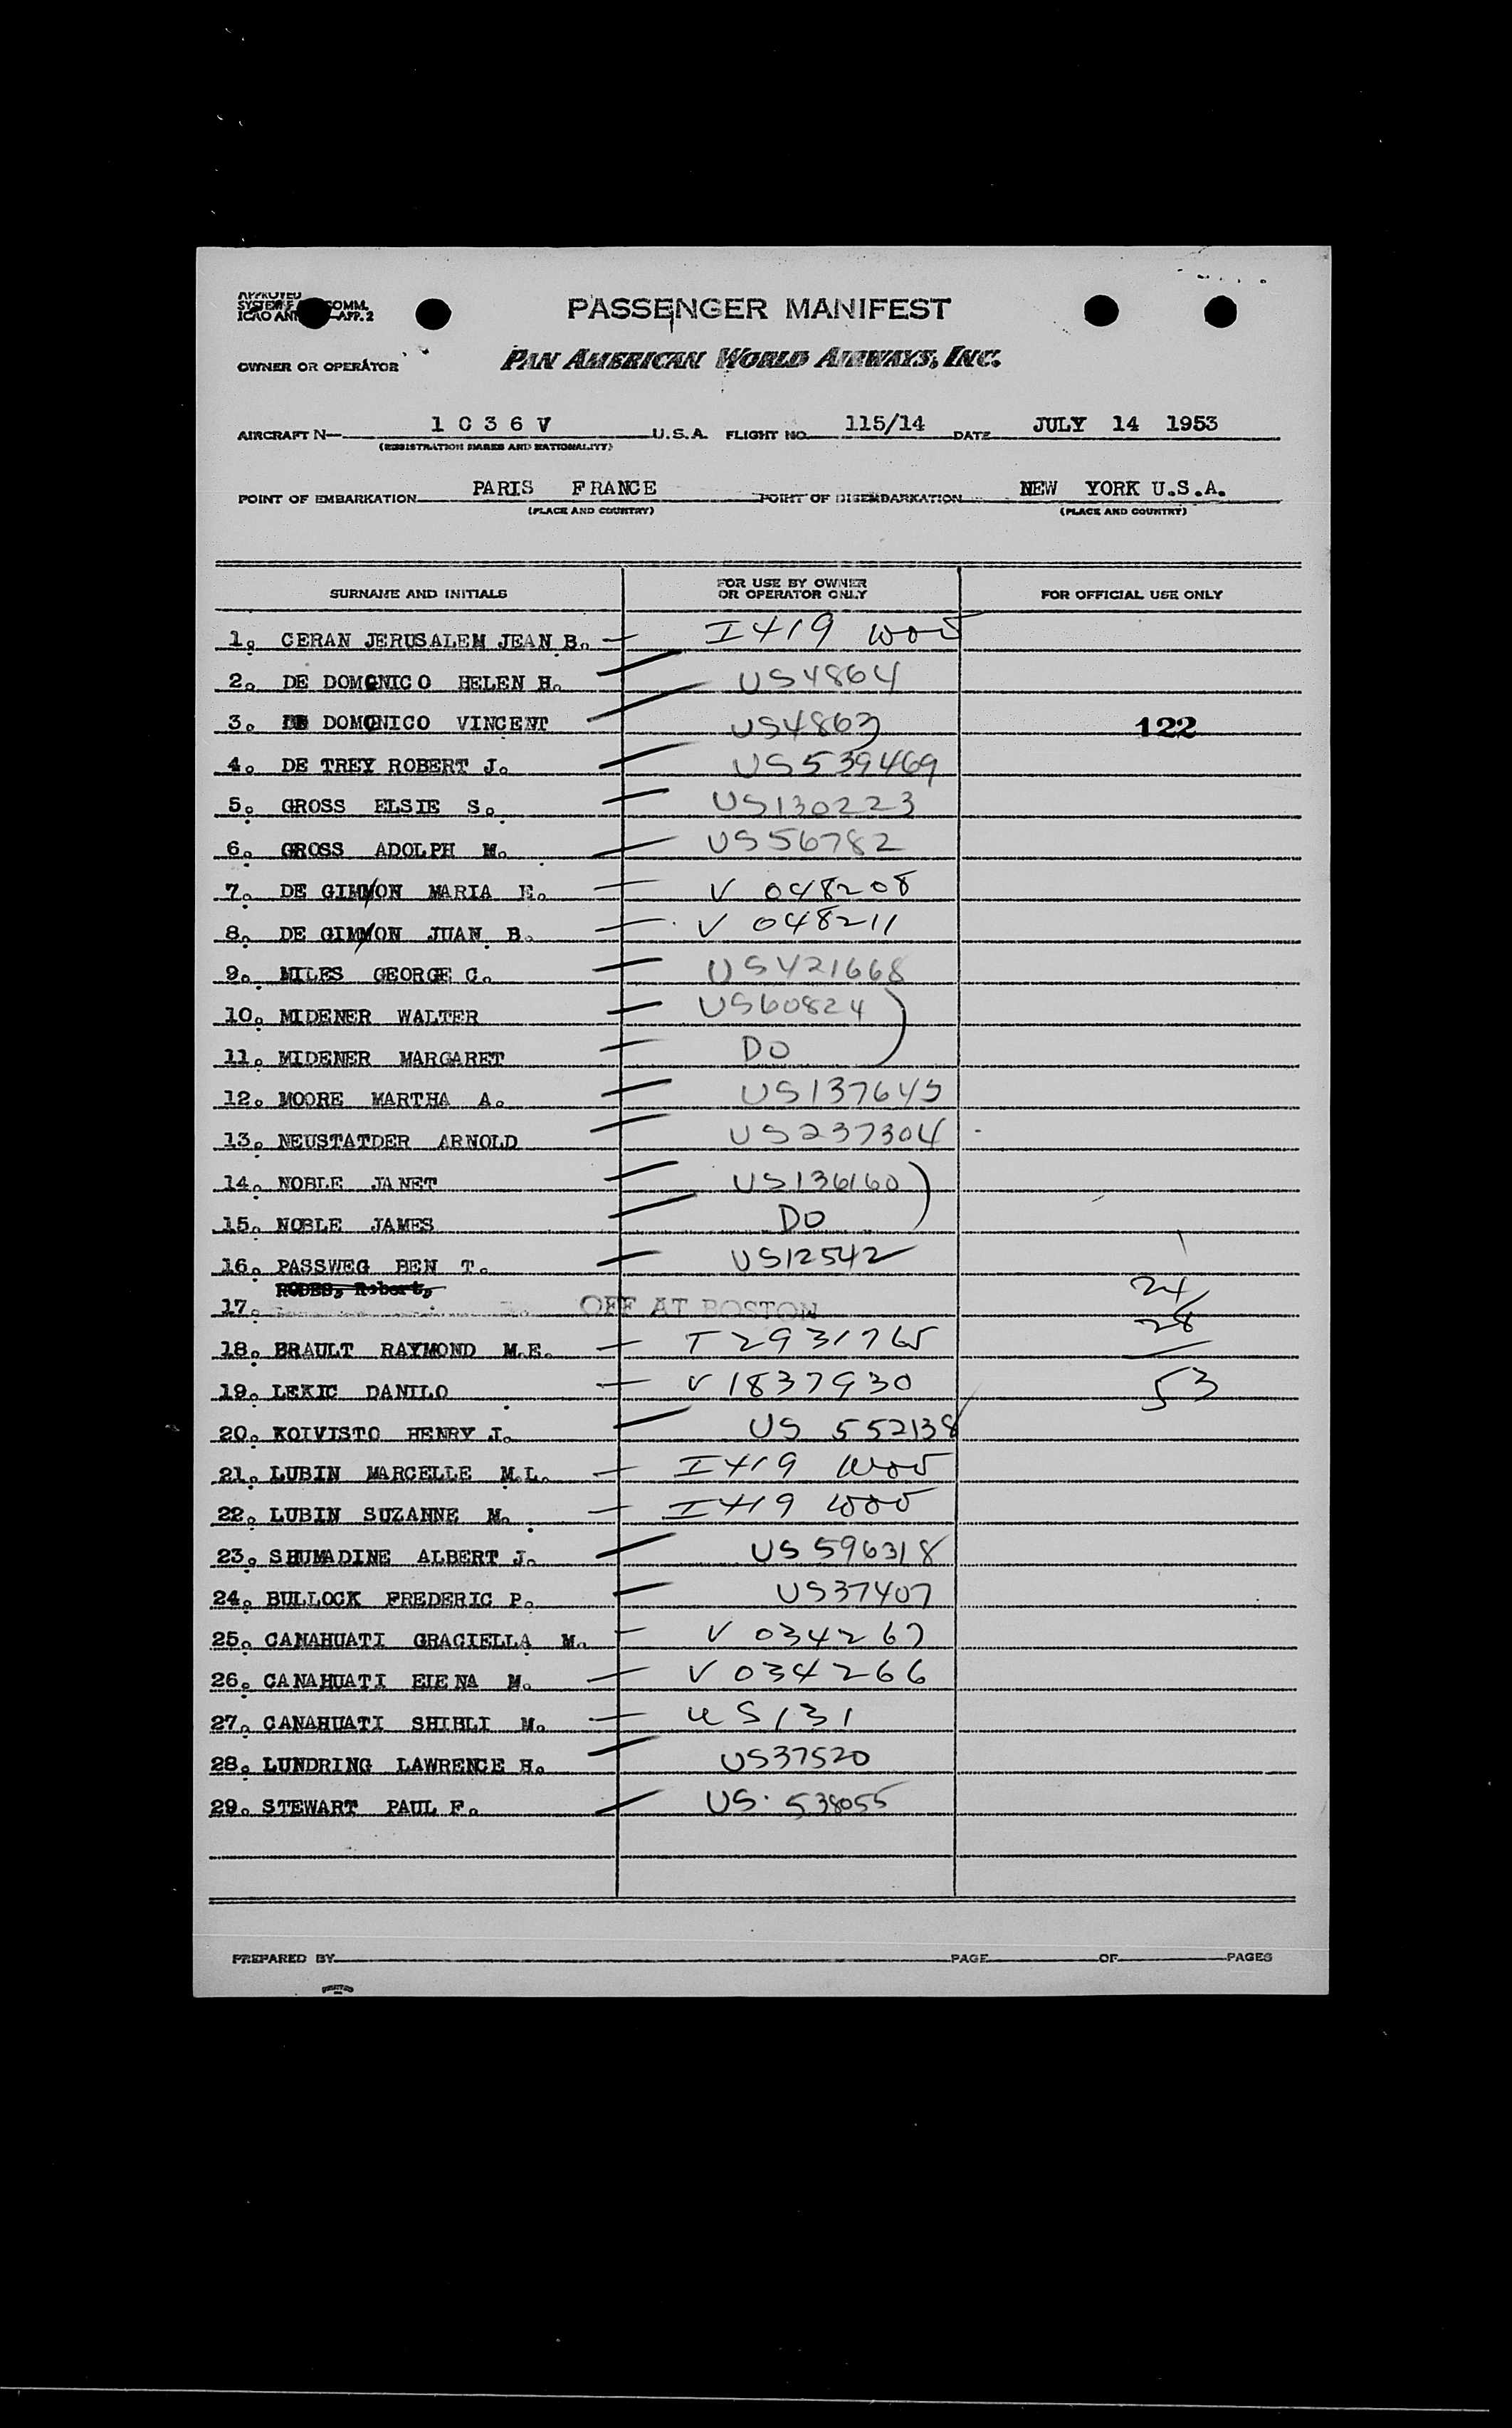 APPROVED
SYSTEM F COMM.
ICAO ANN APP. 2
PASSENGER MANIFEST
OWNER OR OPERATOR PAN AMERICAN WORLD AIRWAYS, INC.
AIRCRAFT N— 1 0 3 6 V U.S.A. FLIGHT NO. 115/14 DATE JULY 14 1953
(REGISTRATION MARKS AND NATIONALITY)
POINT OF EMBARKATION PARIS FRANCE POINT OF DISEMBARKATION NEW YORK U.S.A.
(PLACE AND COUNTRY) (PLACE AND COUNTRY)
SURNAME AND INITIALS FOR USE BY OWNER OR OPERATOR ONLY FOR OFFICIAL USE ONLY
1. CERAN JERUSALEM JEAN B. I 419
2. DE DOMONICO HELEN H. US4864
3. DE DOMONICO VINCENT US4863 122
4. DE TREY ROBERT J. US539469
5. GROSS ELSIE S. US130223
6. GROSS ADOLPH M. US56782
7. DE GIMMON MARIA E. V 048208
8. DE GIMMON JUAN B. V 048211
9. MILES GEORGE C. US421668
10. MIDENER WALTER US60824
11. MIDENER MARGARET DO
12. MOORE MARTHA A. US137645
13. NEUSTATDER ARNOLD US237304
14. NOBLE JANET US136160
15. NOBLE JAMES DO
16. PASSWEG BEN T. US12542
RODES, Robert, 24
17. OFF AT BOSTON 28
18. BRAULT RAYMOND M.E. T 2931765
19. LEKIC DANILO V 1837930 53
20. KOIVISTO HENRY J. US 552138
21. LUBIN MARCELLE M.L. I 419
22. LUBIN SUZANNE M. I 419
23. SHUMADINE ALBERT J. US 596318
24. BULLOCK FREDERIC P. US37407
25. CANAHUATI GRACIELLA M. V 034267
26. CANAHUATI ELENA M. V 034266
27. CANAHUATI SHIBLI M. US 131
28. LUNDRING LAWRENCE H. US37520
29. STEWART PAUL F. US. 538055
PREPARED BY PAGE OF PAGES